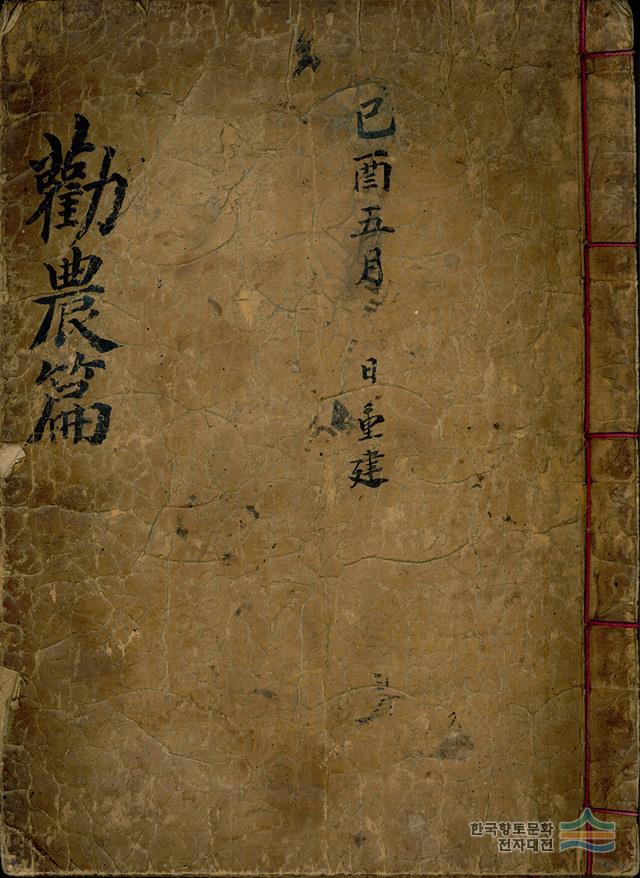 己酉五月 日重建
勸農篇
한국향토문화
전자대전